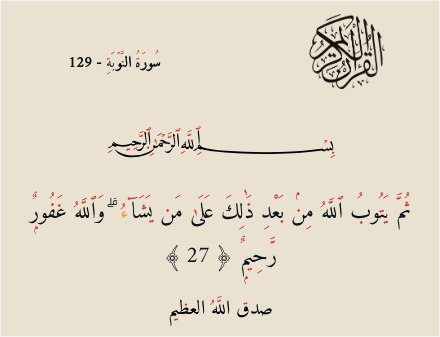 القرآن الكريم
سُورَةُ التَّوْبَةِ - 129
بِسْمِ ٱللَّهِ ٱلرَّحْمَٰنِ ٱلرَّحِيمِ
ثُمَّ يَتُوبُ ٱللَّهُ مِنۢ بَعْدِ ذَٰلِكَ عَلَىٰ مَن يَشَآءُ ۗ وَٱللَّهُ غَفُورٌ
رَّحِيمٌ ﴿ 27 ﴾
صدق اللَّهُ العظيم